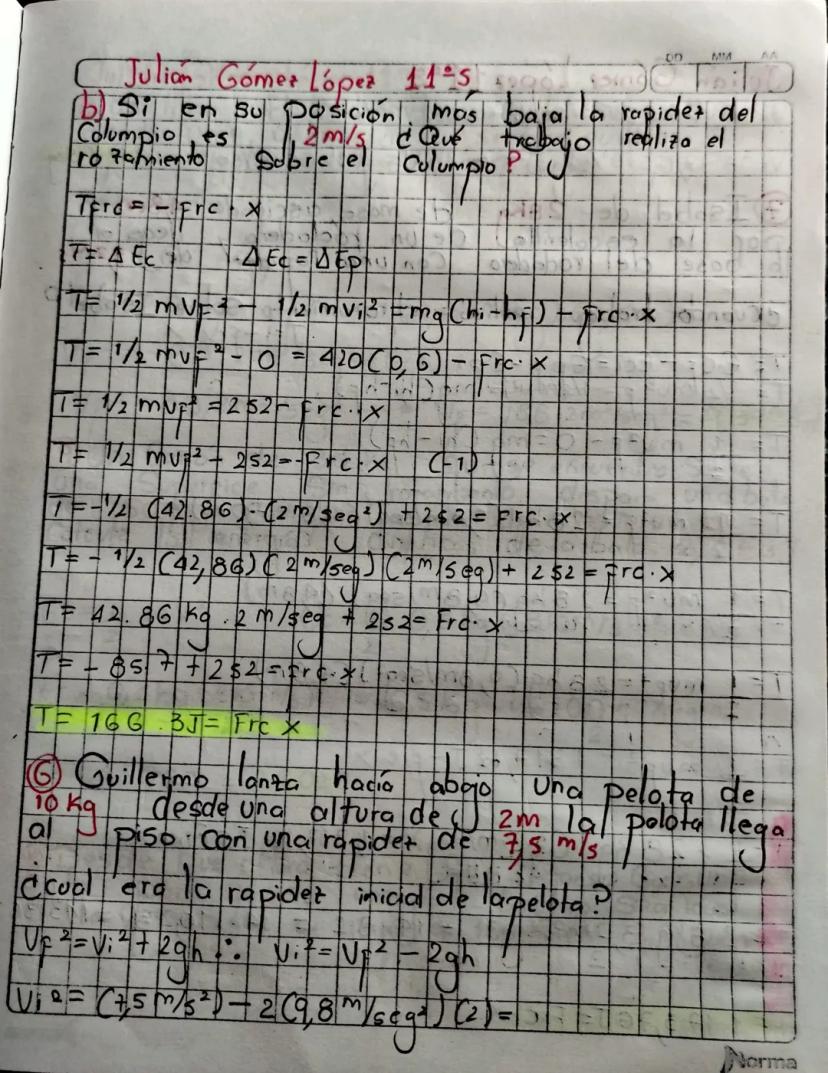 DD MM AA
Julián Gómez López 11°5
b) Si en su posición más baja la rapidez del
Columpio es 2m/s ¿Qué trabajo realiza el
rozamiento sobre el Columpio?
Tfrc = - frc · x
T = Δ Ec Δ Ec = ΔEp
T = 1/2 mvf² - 1/2 mvi² = mg(hi-hf) - frc · x
T = 1/2 mvf² - 0 = 420(0,6) - Frc · x
T = 1/2 mvf² = 252 - frc · x
T = 1/2 mvf² - 252 = - frc · x (-1)
T = -1/2 (42.86) · (2m/seg²) + 252 = Frc · x
T = - 1/2 (42,86) (2m/seg) (2m/seg) + 252 = frc · x
T = 42.86 kg · 2 m/seg + 252 = Frc · x
T = - 85,7 + 252 = frc · x
T = 166.3J = Frc x
⑥ Guillermo lanza hacía abajo una pelota de
10 Kg desde una altura de 2m la pelota llega
al piso con una rapidez de 7,5 m/s
¿cual era la rapidez inicial de la pelota?
Vf² = Vi² + 2gh ∴ Vi² = Vf² - 2gh
Vi² = (7,5 m/s²) - 2(9,8 m/seg²) (2) =
Norma